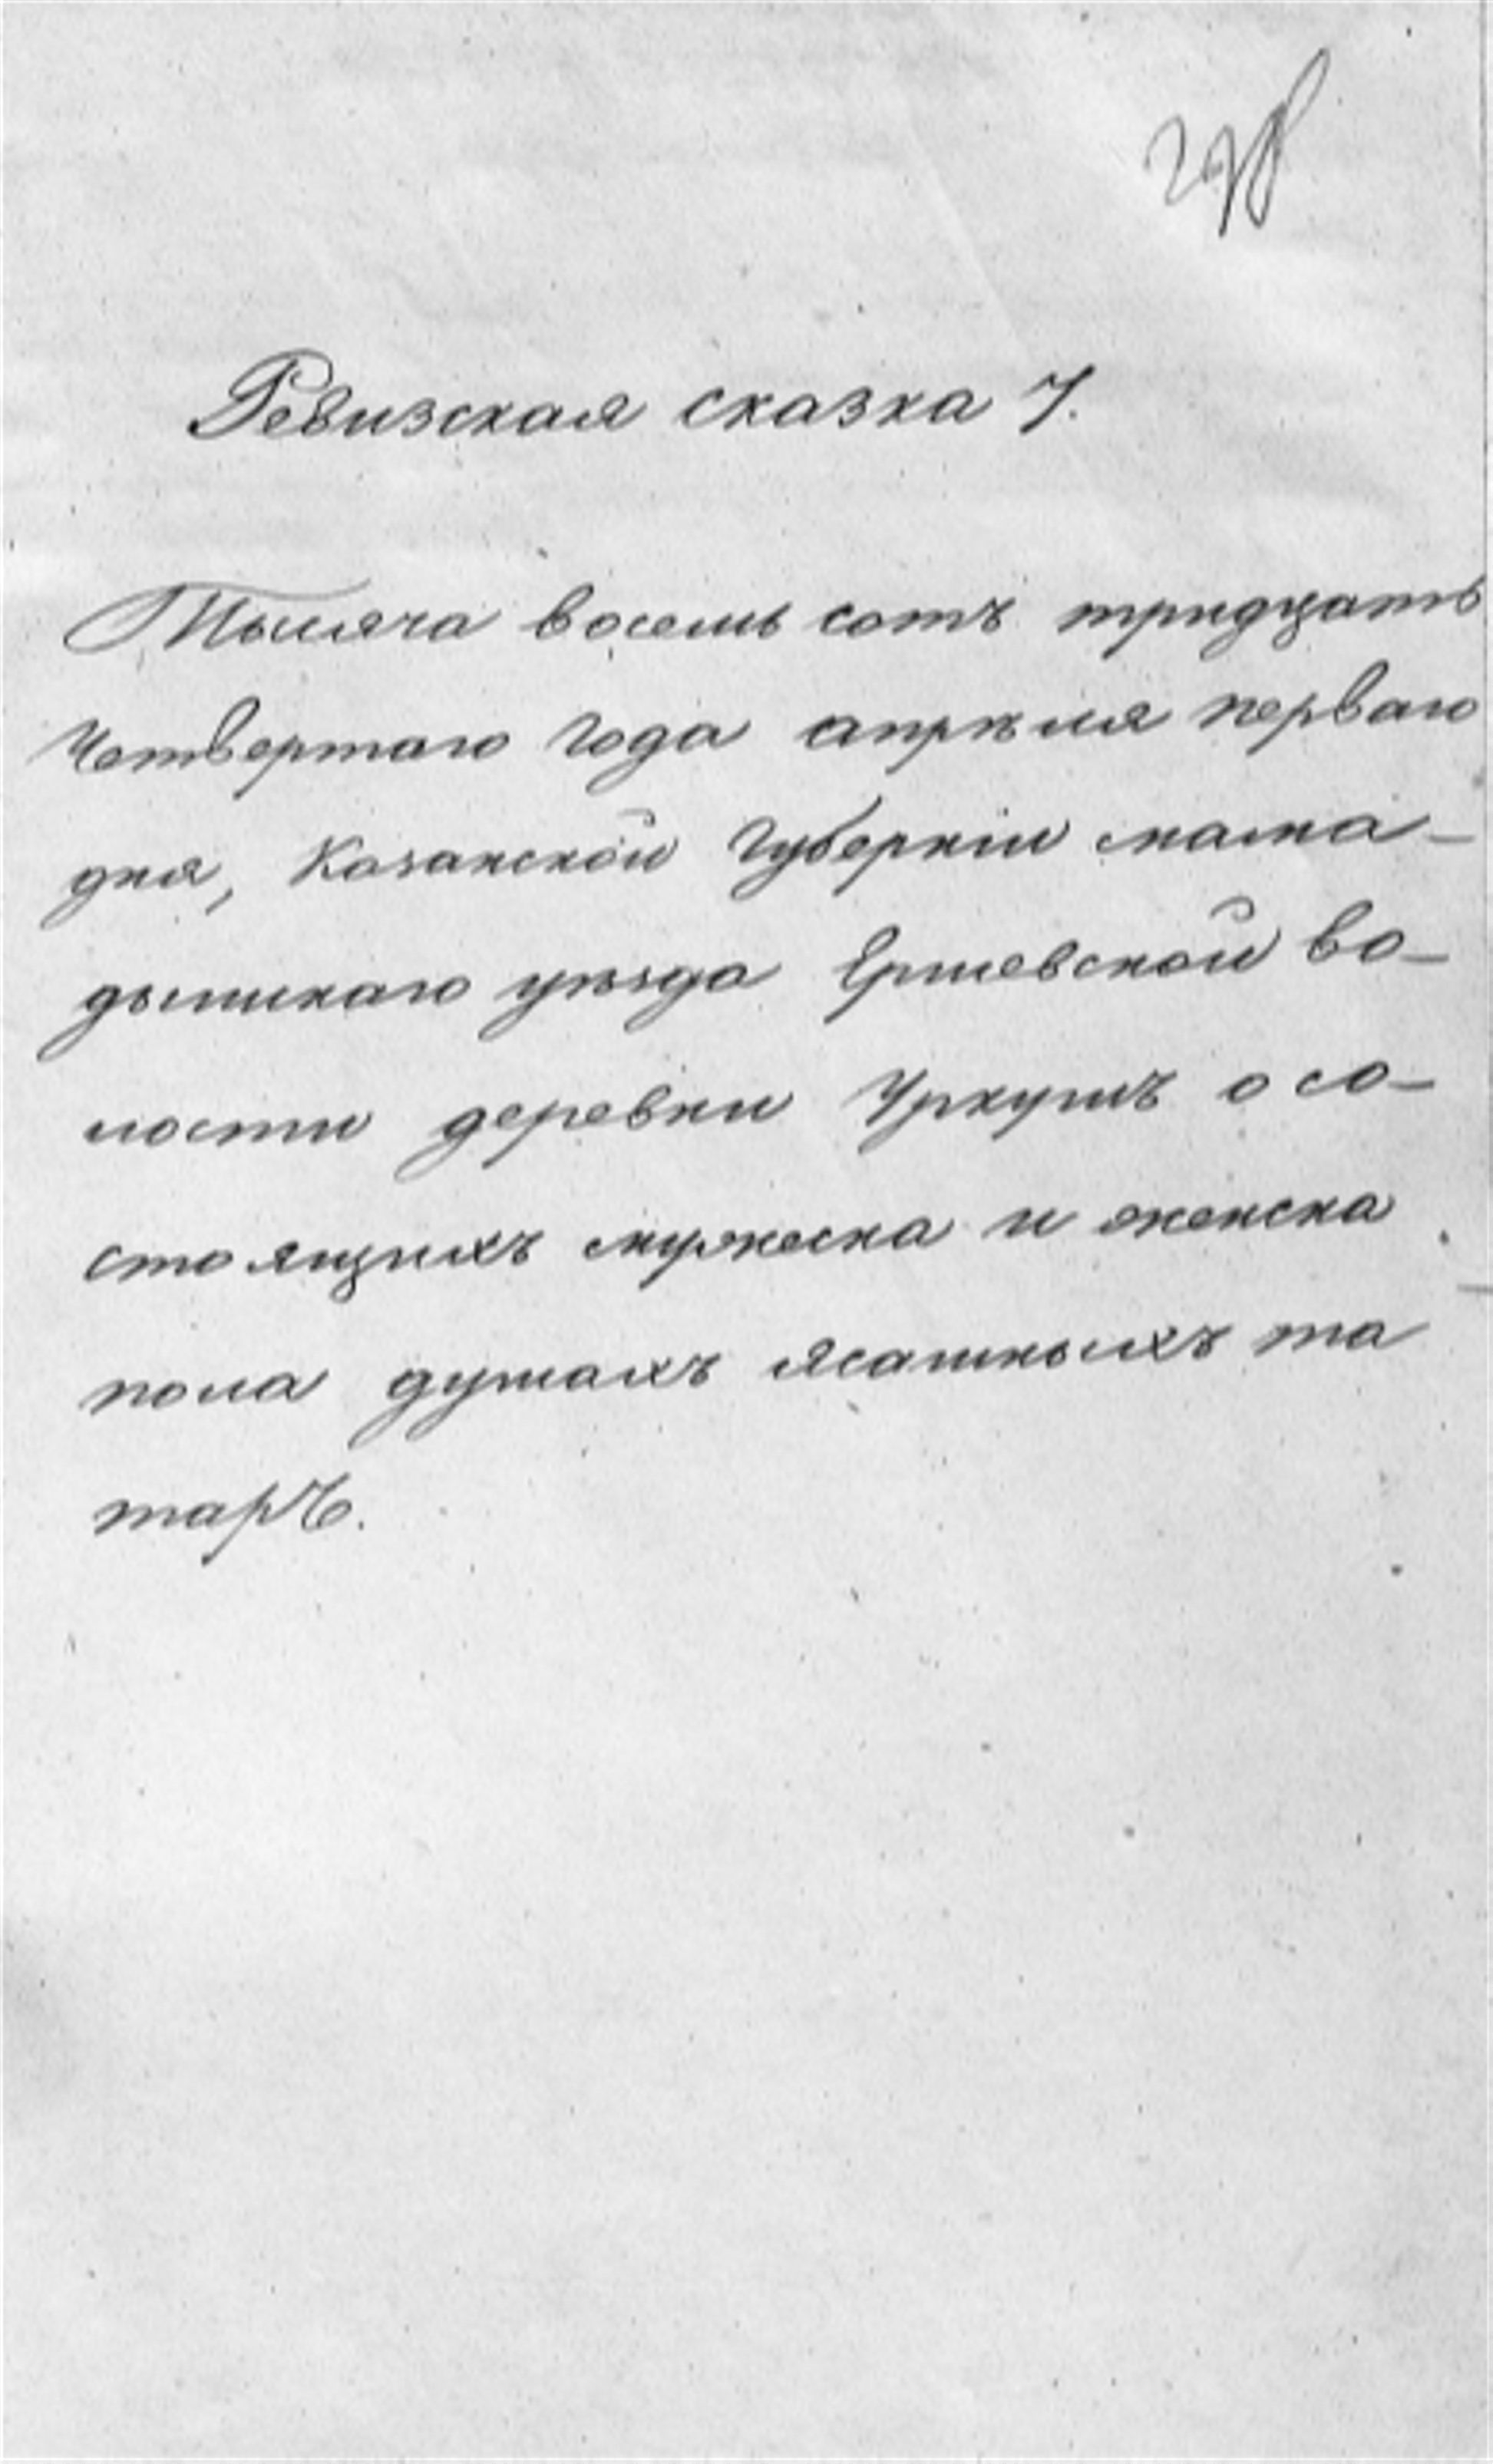 278
Ревизская сказка 7.
Тысяча восемь сотъ тридцать
Четвертаго года апрѣля перваго
дня, Казанской Губерніи мама-
дышскаго уѣзда Ершевской во-
лости деревни Уркушъ о со-
стоящихъ мужеска и женска
пола душахъ ясашныхъ та
таръ.